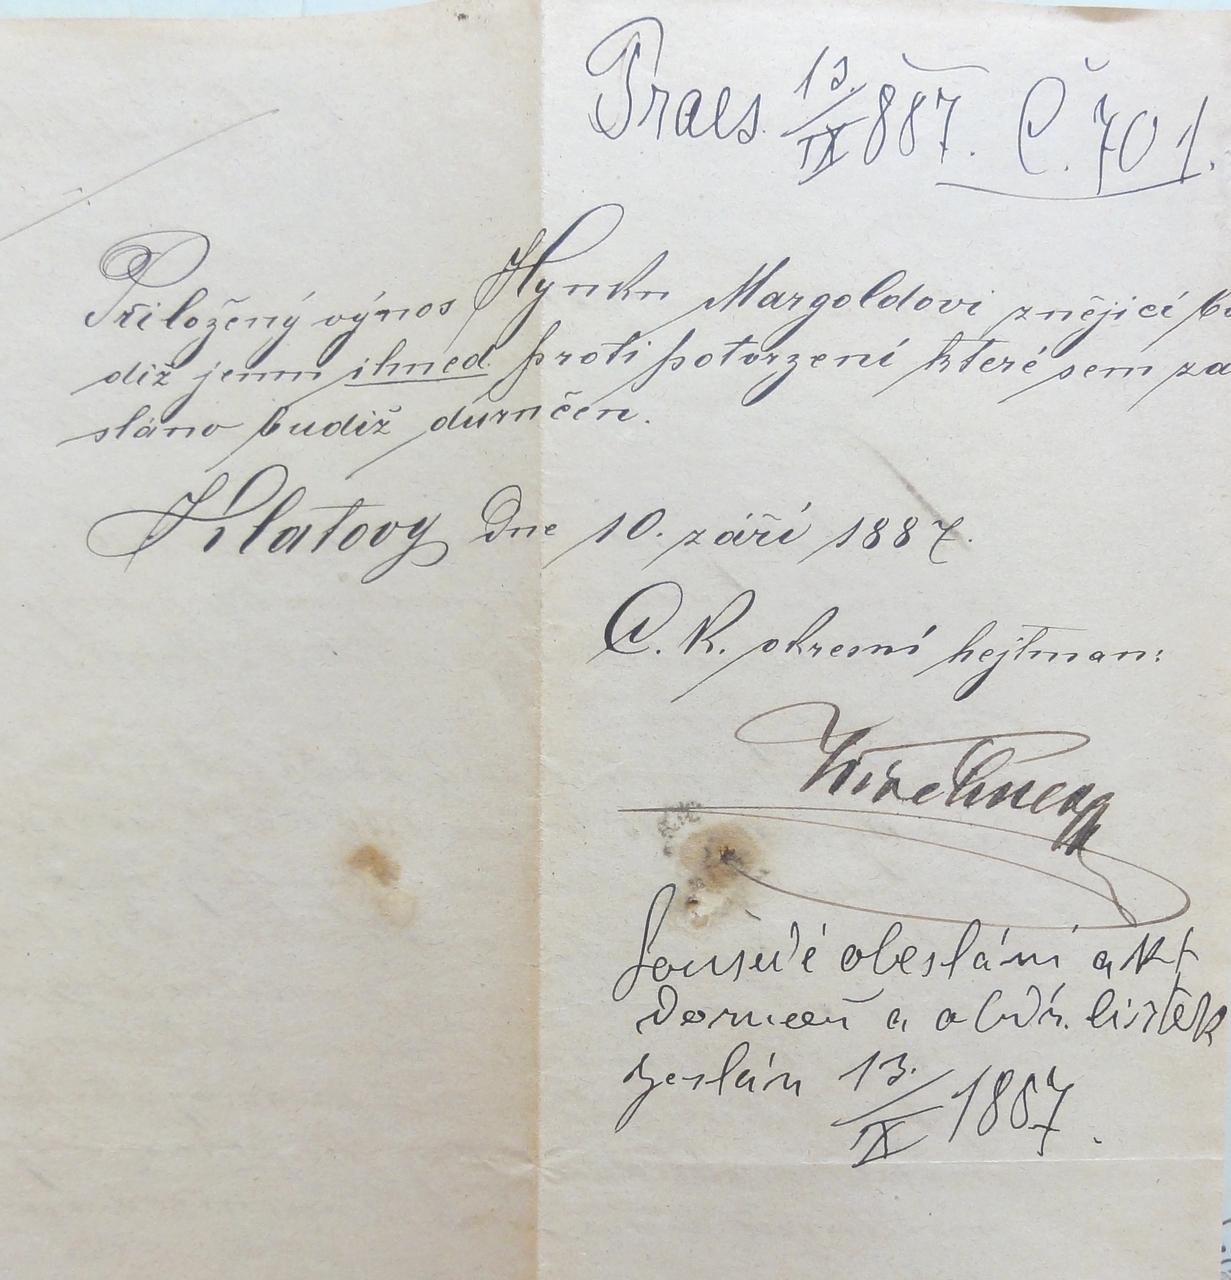 Praes. 13./IX 887. Č. 701.
Přiložený výnos Hynku Margoldovi znějící bu
diž jemu ihned proti potvrzení které sem za
sláno budiž doručen.
Klatovy dne 10. září 1887.
C. k. okresní hejtman:
obeslání akt
doručen a obdr. lístek
zeslán 13./IX 1887.